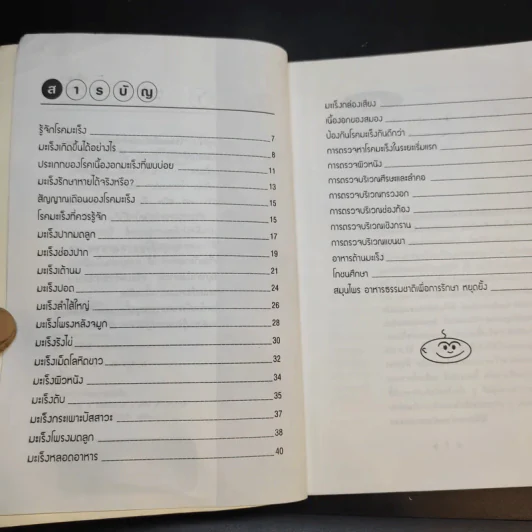 สารบัญ
รู้จักโรคมะเร็ง 7
มะเร็งเกิดขึ้นได้อย่างไร 8
ประเภทของโรคเนื้องอกมะเร็งที่พบบ่อย 11
มะเร็งรักษาหายได้จริงหรือ? 13
สัญญาณเตือนของโรคมะเร็ง 15
โรคมะเร็งที่ควรรู้จัก 15
มะเร็งปากมดลูก 17
มะเร็งช่องปาก 19
มะเร็งเต้านม 21
มะเร็งปอด 24
มะเร็งลำไส้ใหญ่ 26
มะเร็งโพรงหลังจมูก 28
มะเร็งรังไข่ 30
มะเร็งเม็ดโลหิตขาว 32
มะเร็งผิวหนัง 34
มะเร็งตับ 35
มะเร็งกระเพาะปัสสาวะ 37
มะเร็งโพรงมดลูก 38
มะเร็งหลอดอาหาร 40
มะเร็งกล่องเสียง
เนื้องอกของสมอง
ป้องกันโรคมะเร็งกันดีกว่า
การตรวจหาโรคมะเร็งในระยะเริ่มแรก
การตรวจผิวหนัง
การตรวจบริเวณศีรษะและลำคอ
การตรวจบริเวณทรวงอก
การตรวจบริเวณช่องท้อง
การตรวจบริเวณเชิงกราน
การตรวจบริเวณแขนขา
อาหารต้านมะเร็ง
โภชนศึกษา
สมุนไพร อาหารธรรมชาติเพื่อการรักษา หยุดยั้ง